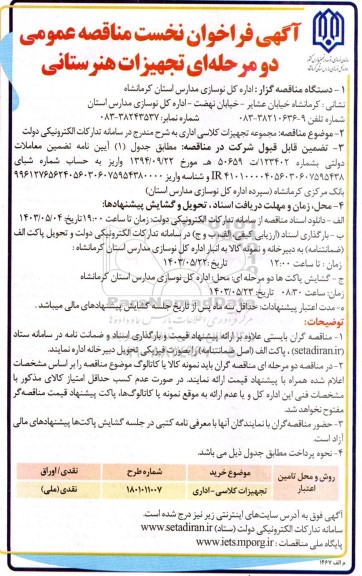 آگهی فراخوان نخست مناقصه عمومی
دو مرحله‌ای تجهیزات هنرستانی
۱ – دستگاه مناقصه گزار : اداره کل نوسازی مدارس استان کرمانشاه
نشانی : کرمانشاه خیابان عشایر - خیابان نهضت - اداره کل نوسازی مدارس استان
شماره تلفن ۹-۳۸۲۱۰۶۳۶-۰۸۳ شماره نمابر: ۳۸۲۴۳۵۳۷-۰۸۳
۲- موضوع مناقصه: مجموعه تجهیزات کلاسی اداری به شرح مندرج در سامانه تدارکات الکترونیکی دولت
۳- تضمین قابل قبول شرکت در مناقصه: مطابق جدول (۱) آیین نامه تضمین معاملات
دولتی بشماره ۱۲۳۴۰۲/ت ۵۰۶۵۹ هـ مورخ ۱۳۹۴/۰۹/۲۲ واریز به حساب شماره شبای
بانک مرکزی کرمانشاه (سپرده اداره کل نوسازی مدارس استان)
۴- محل، زمان و مهلت دریافت اسناد ، تحویل و گشایش پیشنهادها:
الف - دانلود اسناد مناقصه از سامانه تدارکات الکترونیکی دولت: زمان تا ساعت ۱۹:۰۰ تاریخ ۱۴۰۳/۰۵/۰۴
ب - بارگذاری اسناد (ارزیابی کیفی، الف، ب و ج) در سامانه تدارکات الکترونیکی دولت و تحویل پاکت الف
(ضمانتنامه) به دبیرخانه و نمونه کالا به انبار اداره کل نوسازی مدارس استان کرمانشاه :
زمان : تا ساعت ۱۲:۰۰ تاریخ: ۱۴۰۳/۰۵/۲۲
ج - گشایش پاکت ها دو مرحله ای: محل: اداره کل نوسازی مدارس استان کرمانشاه
زمان: ساعت ۰۸:۳۰ تاریخ: ۱۴۰۳/۰۵/۲۳
۵- مدت اعتبار پیشنهادات: حداقل سه ماه پس از تاریخ جلسه گشایش پیشنهادهای مالی میباشد .
توضیحات:
۱- مناقصه گران بایستی علاوه بر ارائه پیشنهاد قیمت و بارگذاری اسناد و ضمانت نامه در سامانه ستاد
(setadiran.ir) ، پاکت الف (اصل ضمانتنامه) را بصورت فیزیکی تحویل دبیرخانه اداره نمایند.
۲- در مناقصه دو مرحله ای مناقصه گران باید نمونه کالا یا کاتالوگ موضوع مناقصه را بر اساس مشخصات
اعلام شده همراه با پیشنهاد قیمت ارائه نمایند. در صورت عدم کسب حداقل امتیاز کالای مذکور با
مشخصات فنی این اداره کل و یا عدم ارائه به موقع نمونه یا کاتالوگ‌ها، پاکت پیشنهاد قیمت مناقصه‌گر
مفتوح نخواهد شد.
۳- حضور مناقصه‌گران یا نمایندگان آنها با معرفی نامه کتبی در جلسه گشایش پاکت‌ها پیشنهادهای مالی
آزاد است.
۴- نحوه پرداخت مطابق جدول ذیل می باشد.
روش و محل تامین اعتبار موضوع خرید شماره طرح نقدی/اوراق
تجهیزات کلاسی - اداری ۱۸۰۱۰۱۱۰۰۷ نقدی (ملی)
آگهی فوق به آدرس سایت‌های اینترنتی زیر نیز درج شده است.
سامانه تدارکات الکترونیکی دولت (ستاد) www.setadiran.ir
پایگاه ملی مناقصات : www.iets.mporg.ir
م الف ۱۴۶۷